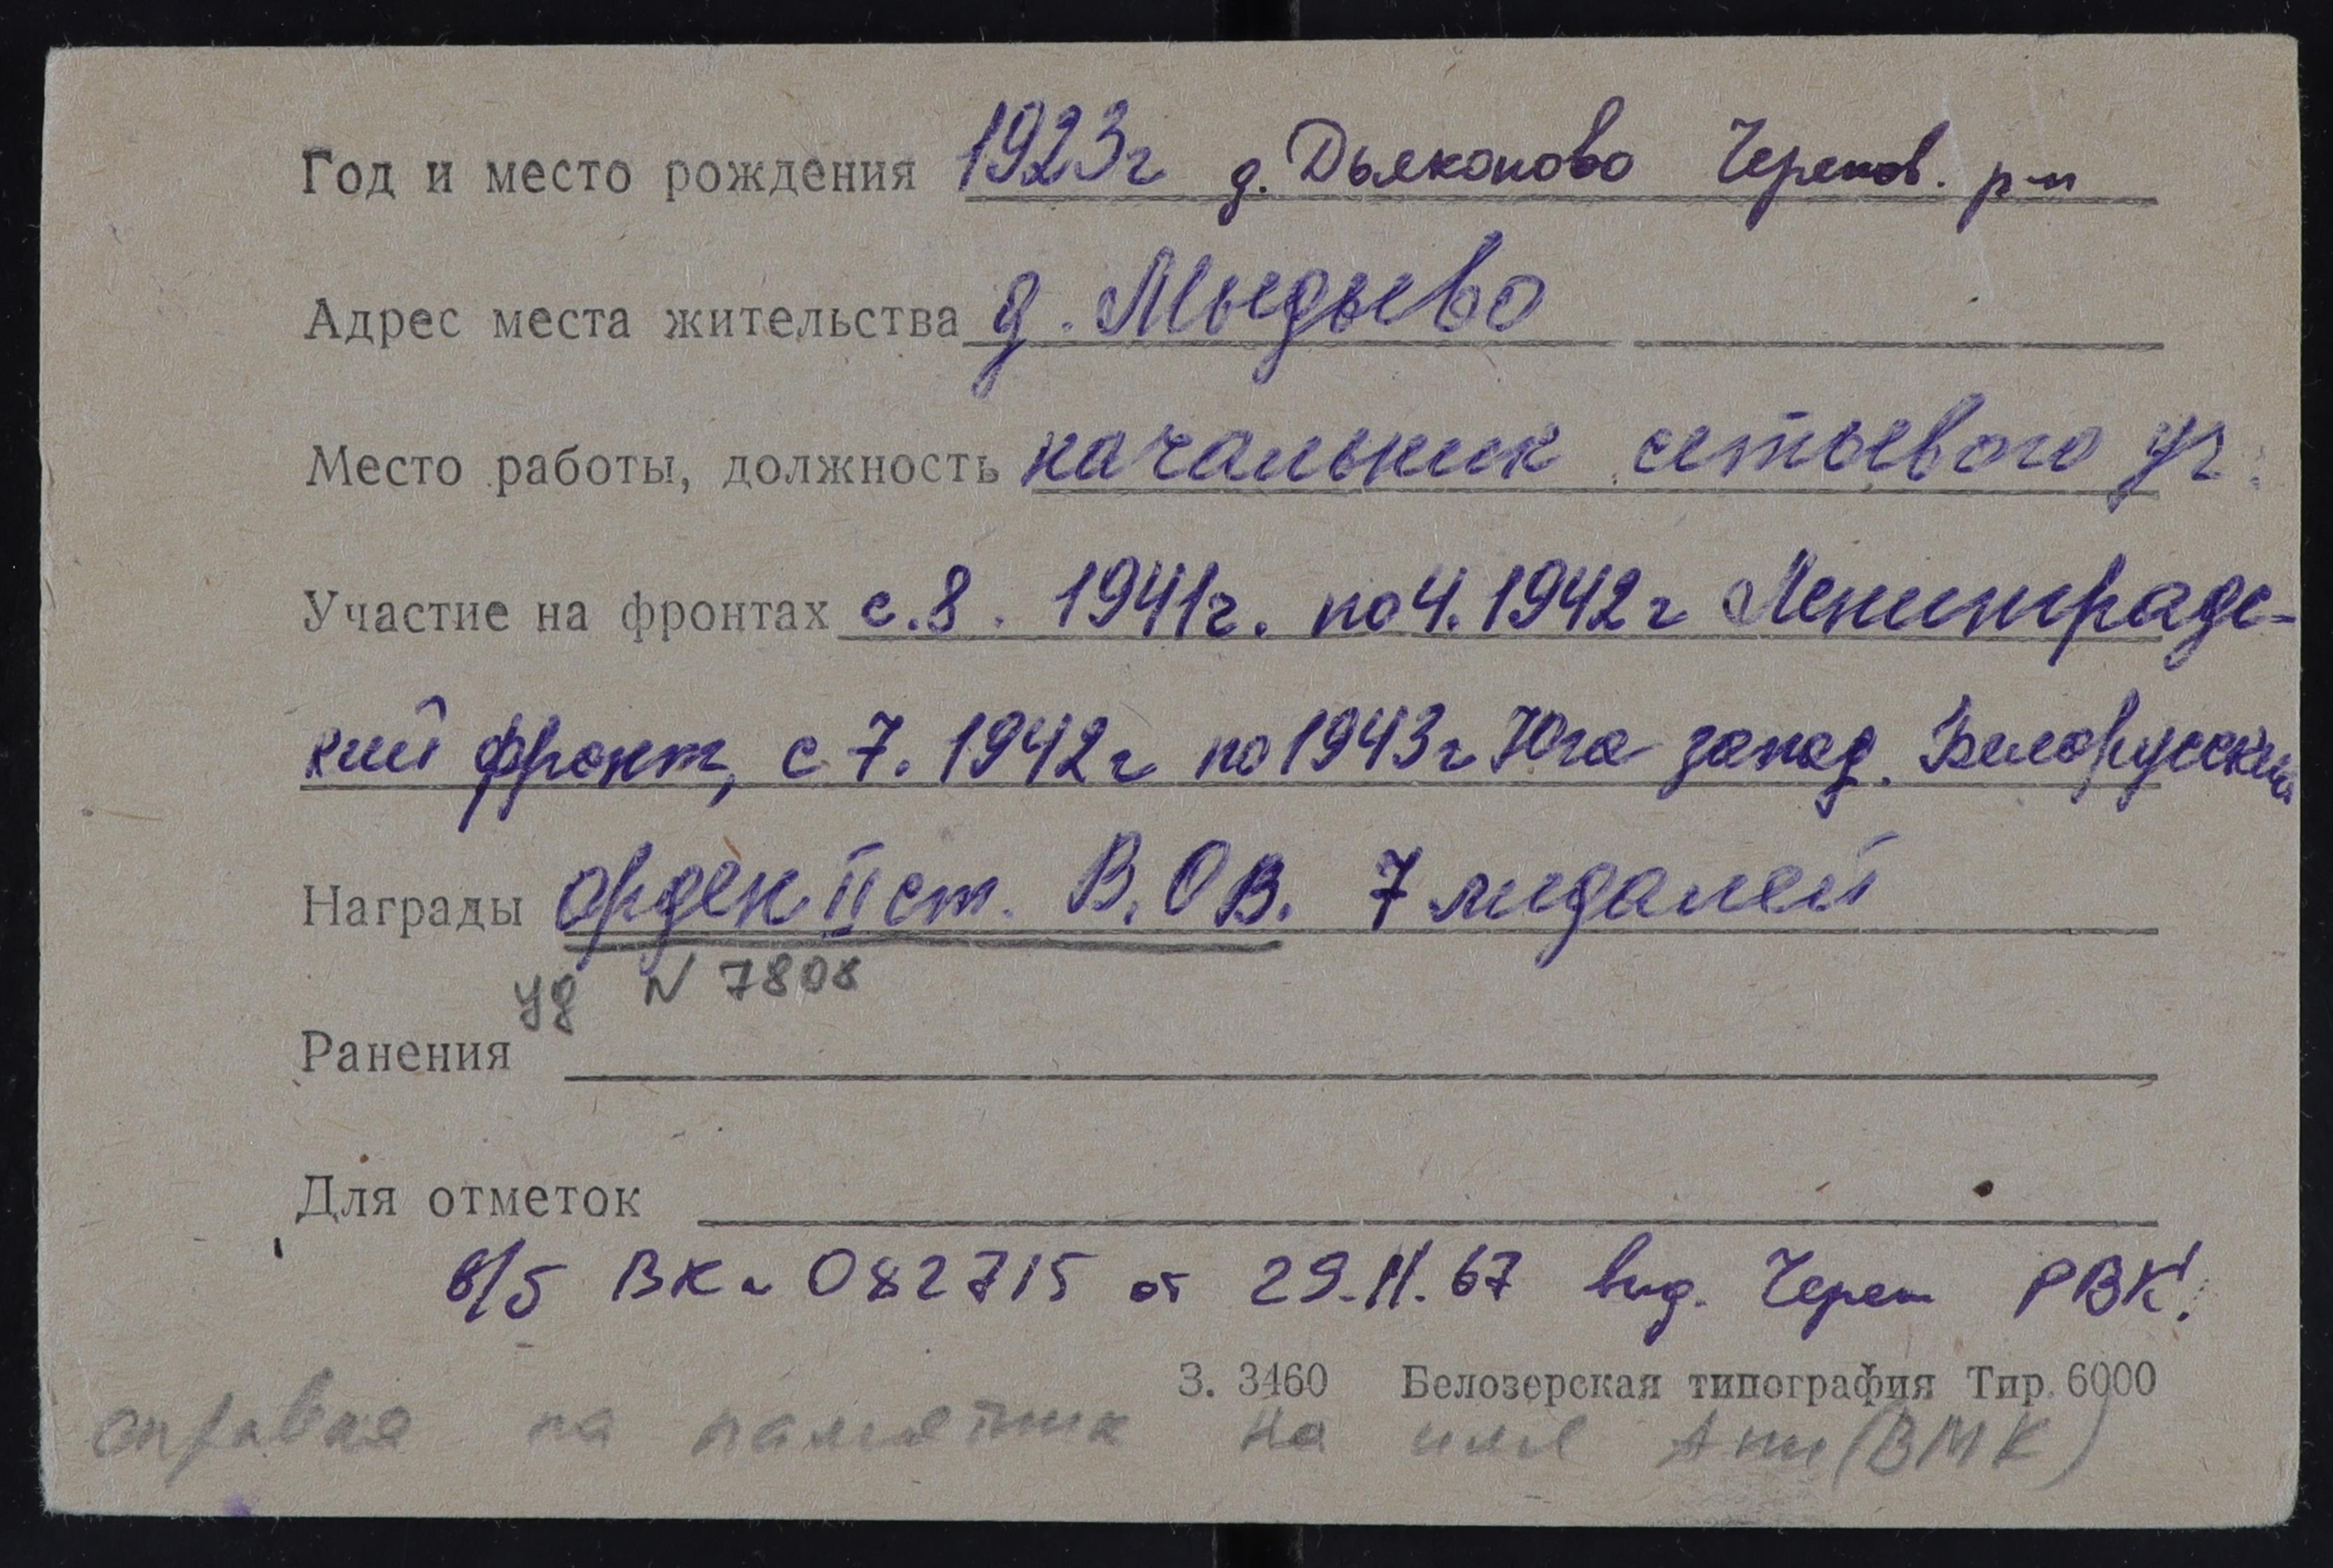 Год и место рождения 1923г д. Дьяконово Черепов. р-н
Адрес места жительства д. Мыдьево
Место работы, должность начальник сетьевого уч.
Участие на фронтах с.8. 1941г. по 4.1942г Ленинградс-
кий фронт, с 7.1942г по 1943г Юго запад. Белорусский
Награды орден II ст. В.ОВ. 7 мидалей
уд N 7808
Ранения
Для отметок
в/б ВК N 082715 от 29.11.67 выд. Череп РВК.
З. 3460 Белозерская типография Тир. 6000
справка на памятник на имя (ВМК)